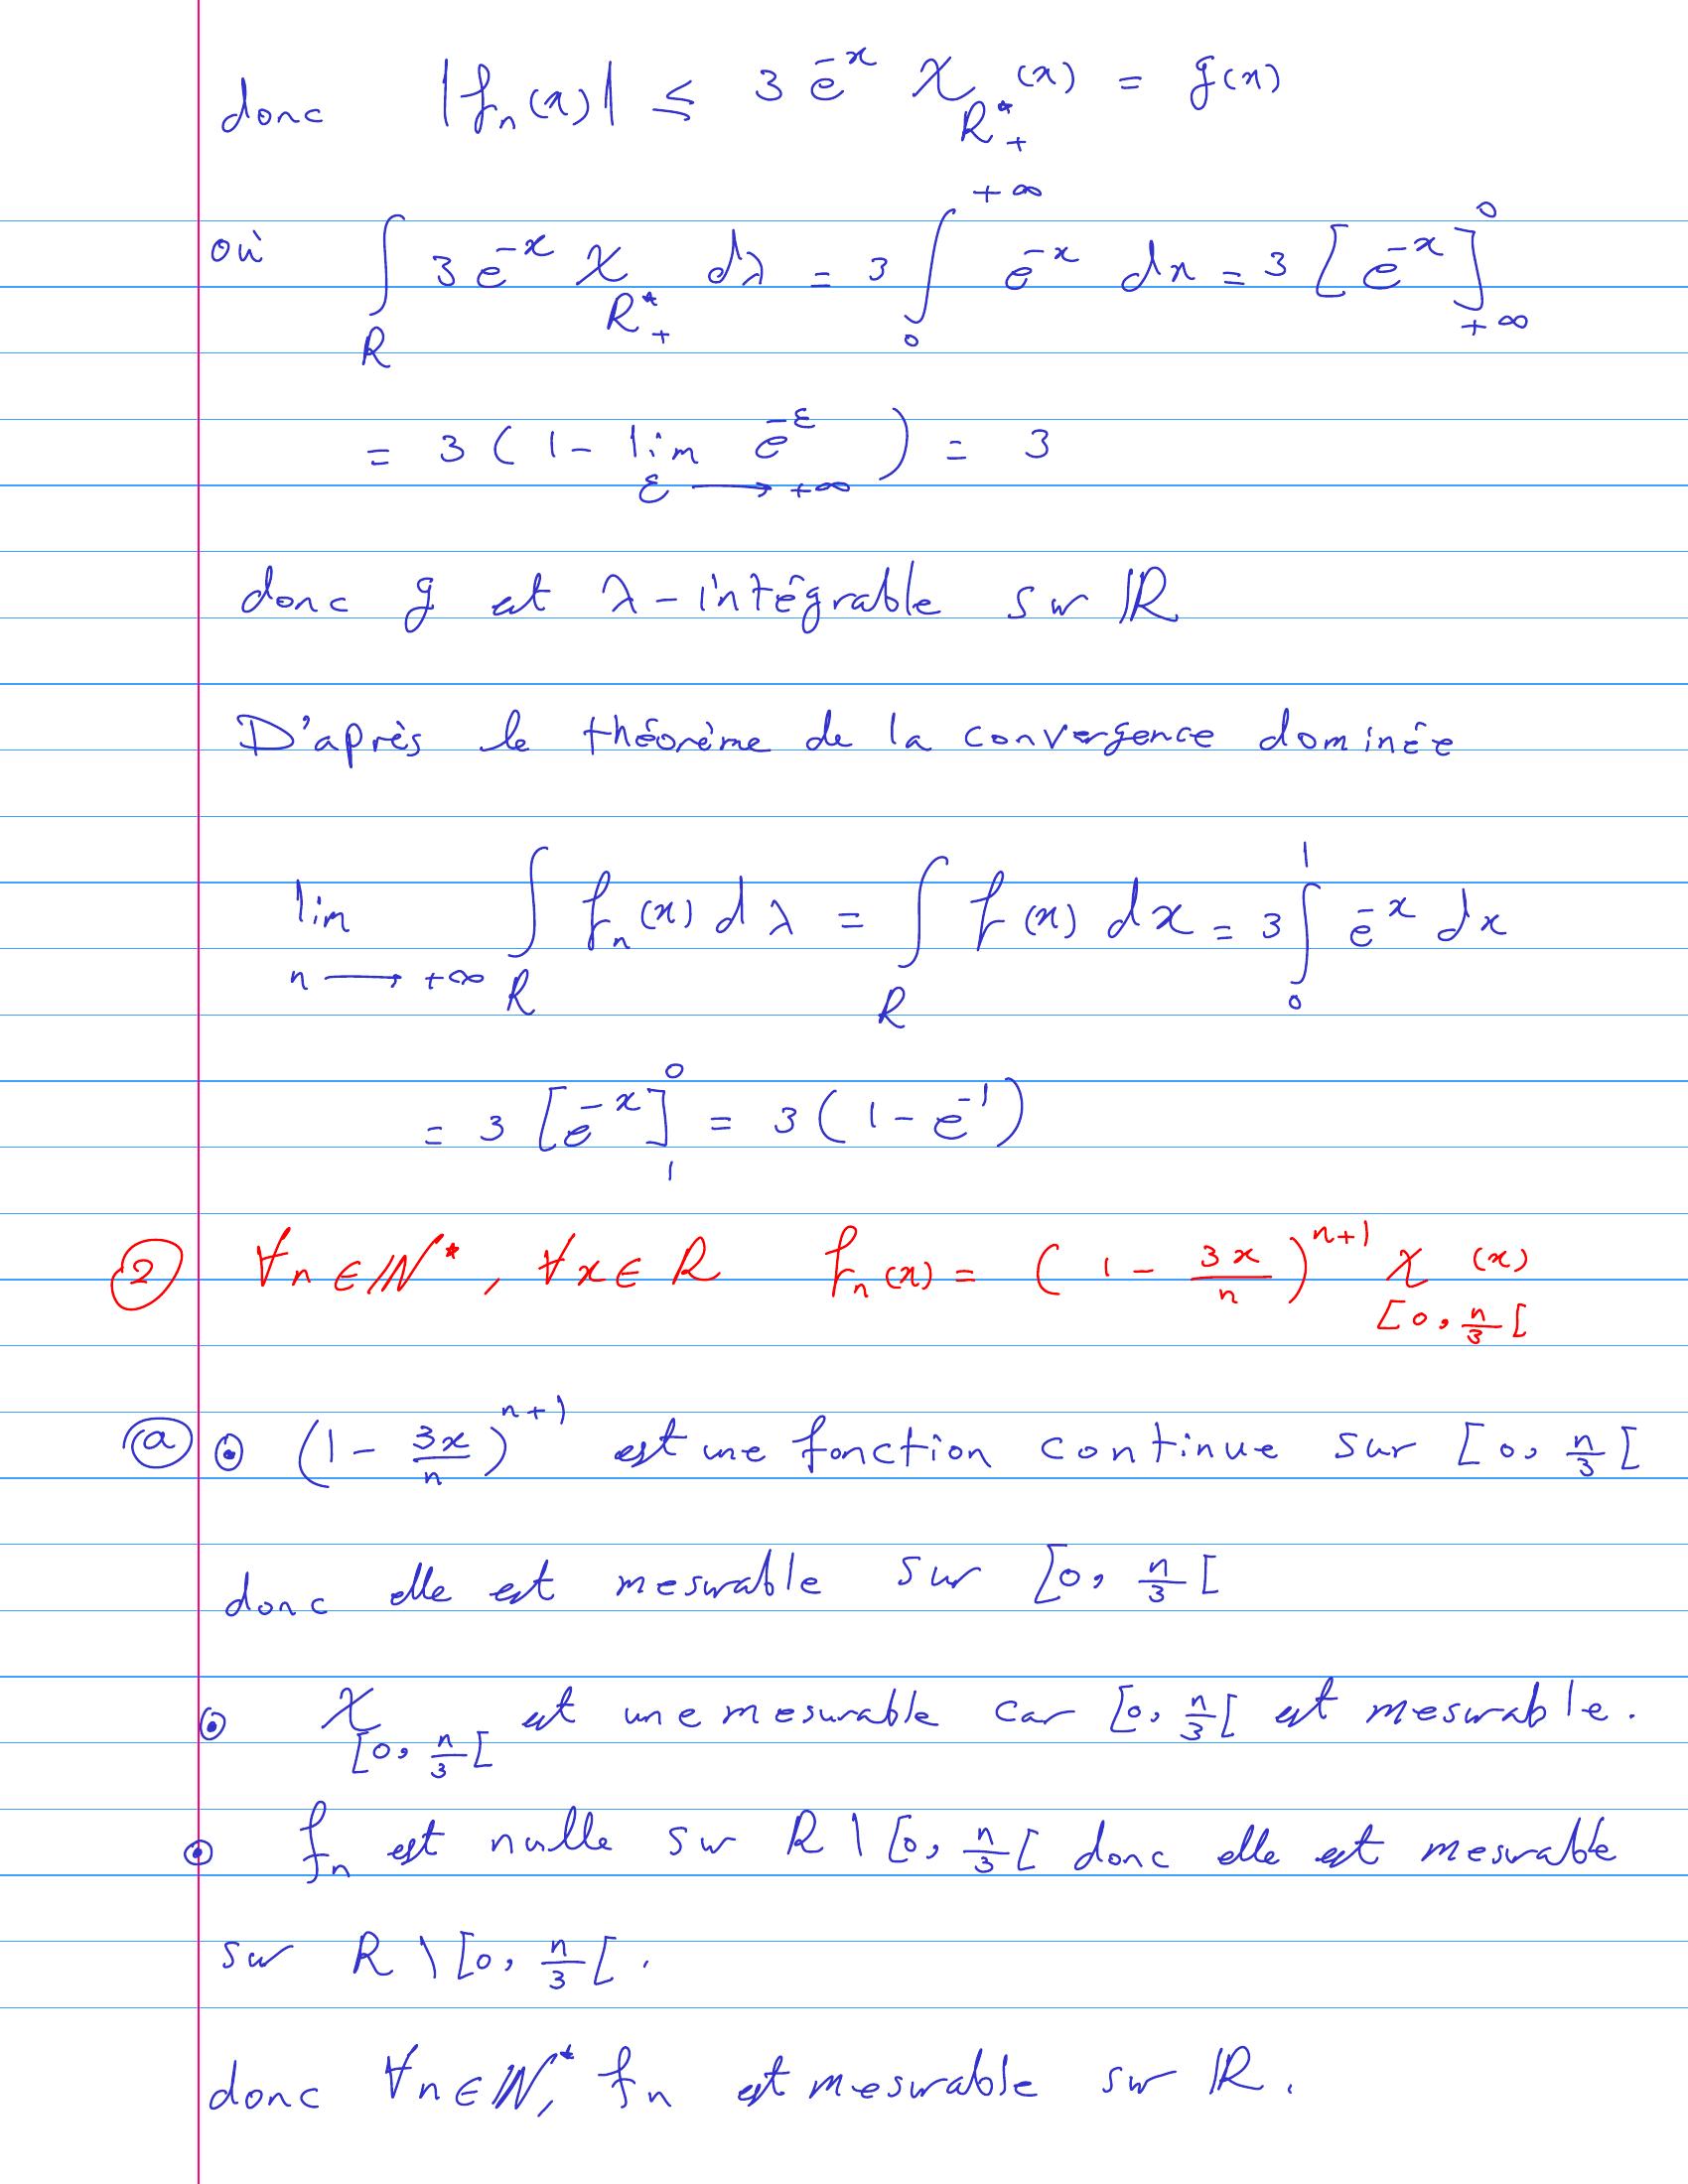 donc |fₙ(x)| ≤ 3 e⁻ˣ χ_{R*₊}(x) = g(x)
où ∫_R 3 e⁻ˣ χ_{R*₊} dλ = 3 ∫₀^{+∞} e⁻ˣ dx = 3 [e⁻ˣ]_{+∞}^{0}
= 3 (1 - lim_{ε → +∞} e^{-ε}) = 3
donc g est λ-intégrable sur ℝ
D'après le théorème de la convergence dominée
lim_{n → +∞} ∫_R fₙ(x) dλ = ∫_R f(x) dx = 3 ∫₀¹ e⁻ˣ dx
= 3 [e⁻ˣ]₁⁰ = 3 (1 - e⁻¹)
② ∀n ∈ ℕ*, ∀x ∈ R fₙ(x) = (1 - 3x/n)^{n+1} χ_{[0, n/3[}(x)
ⓐ ⊙ (1 - 3x/n)^{n+1} est une fonction continue sur [0, n/3[
donc elle est mesurable sur [0, n/3[
⊙ χ_{[0, n/3[} est une mesurable car [0, n/3[ est mesurable.
⊙ fₙ est nulle sur R \ [0, n/3[ donc elle est mesurable
sur R \ [0, n/3[.
donc ∀n ∈ ℕ*, fₙ est mesurable sur ℝ.